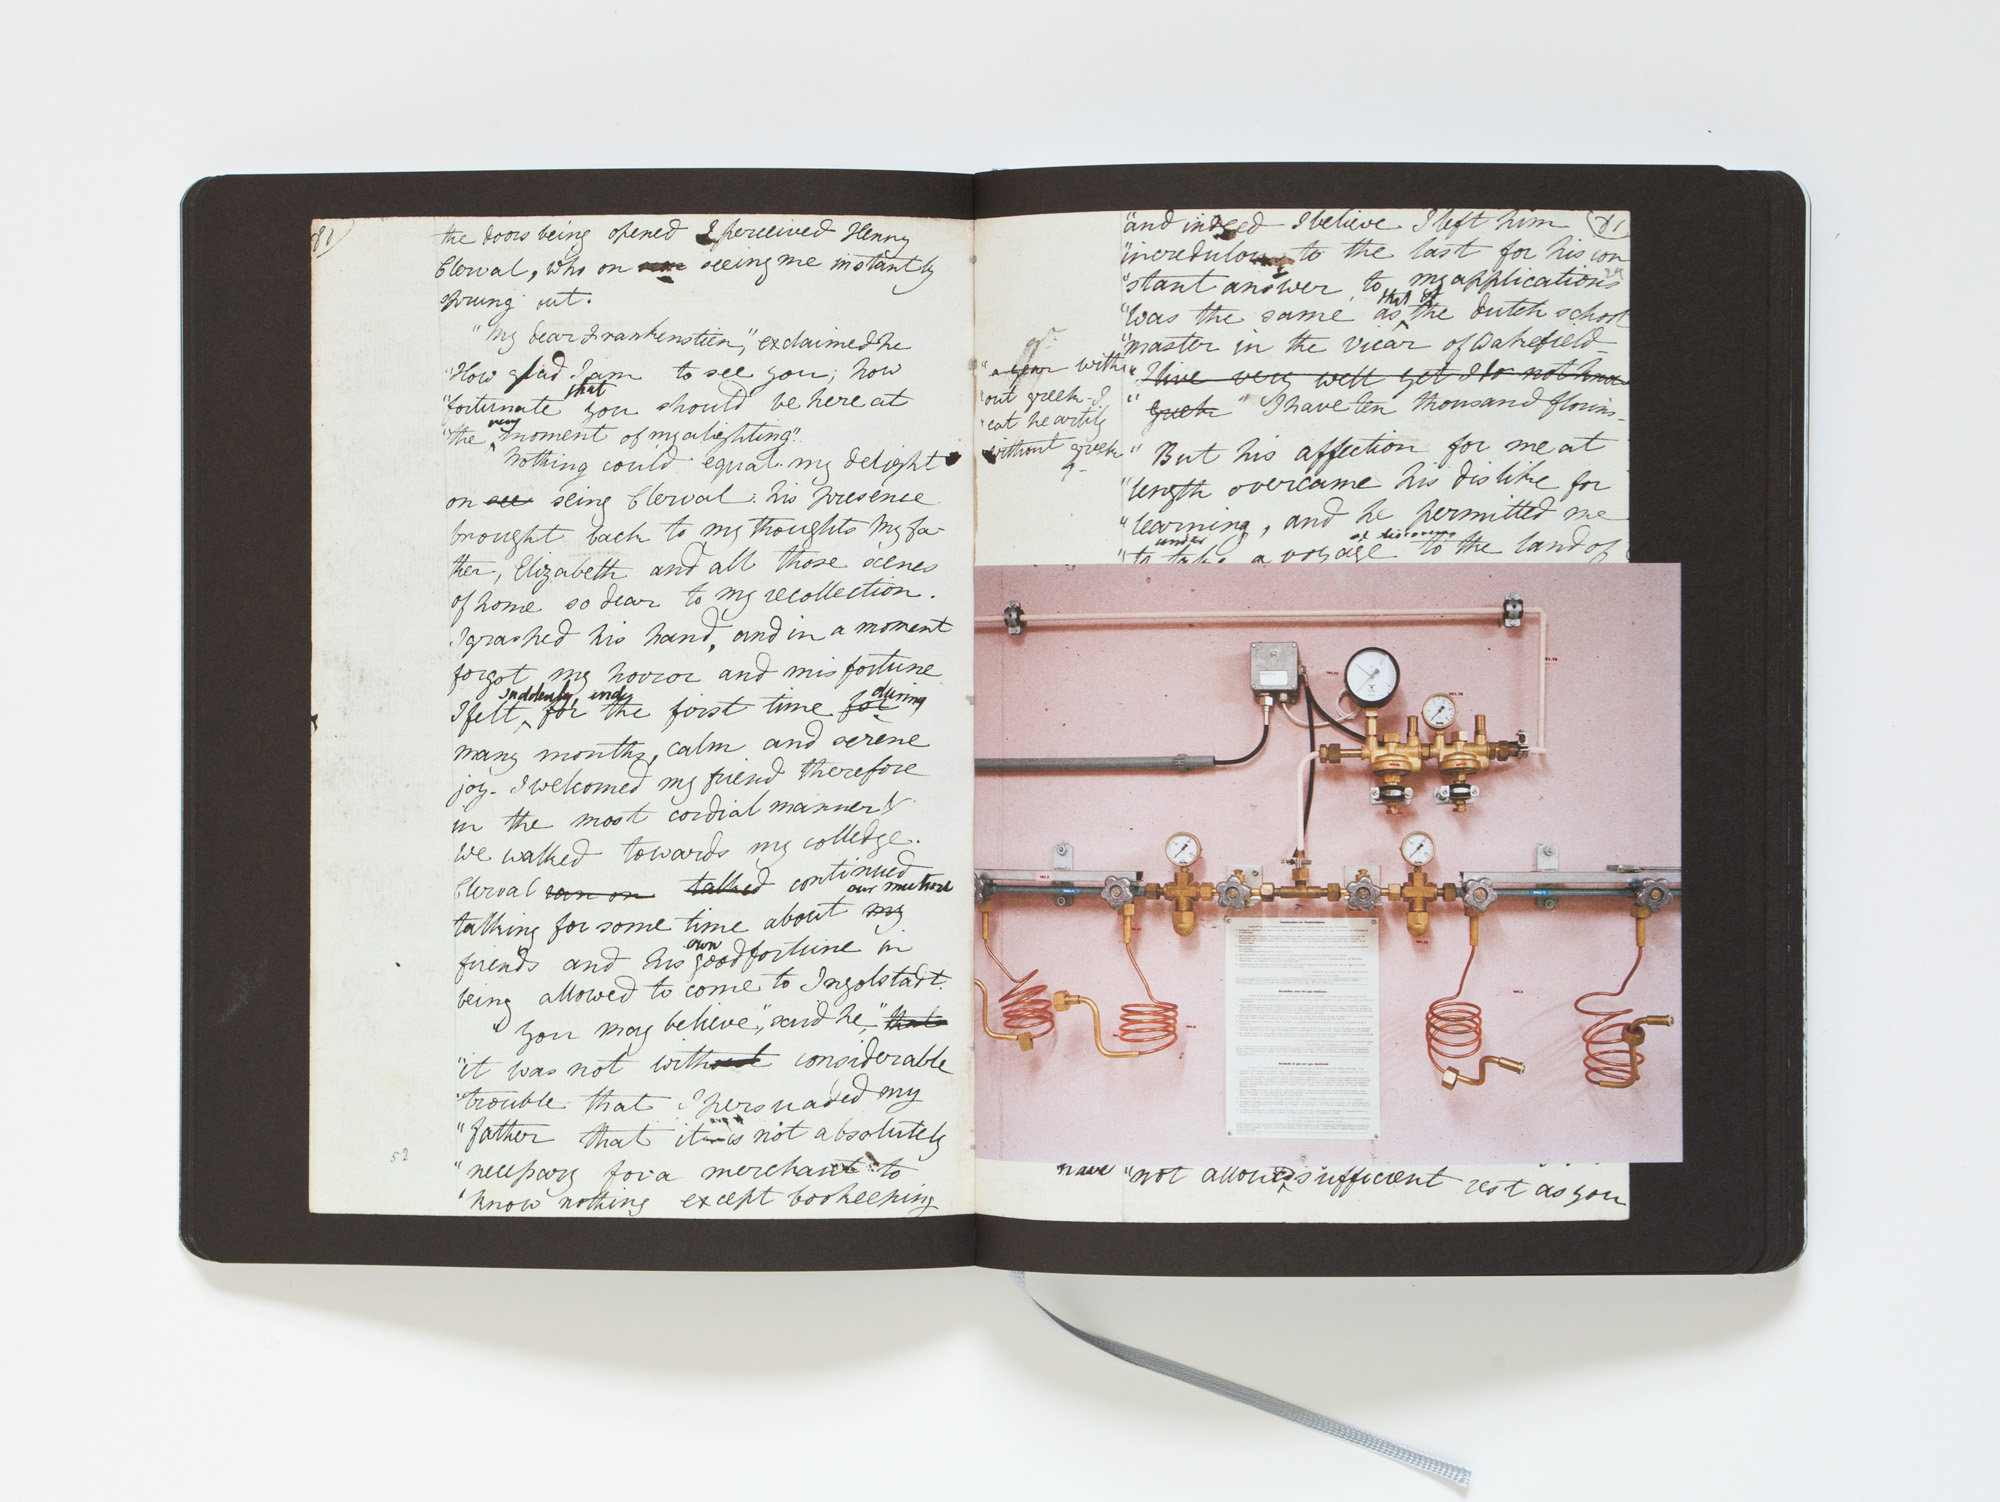 81)
the doors being opened I perceived Henry
Clerval, who on seeing me instantly
sprung out.
"My dear Frankenstein," exclaimed he
"How glad I am to see you; how
that
"fortunate you should be here at
very
"the moment of my alighting".
Nothing could equal my delight
on see seing Clerval: his presence
brought back to my thoughts my fa-
ther, Elizabeth and all those scenes
of home so dear to my recollection.
I grasped his hand, and in a moment
forgot my horror and misfortune
suddenly, during
I felt, for the first time for
many months, calm and serene
joy. I welcomed my friend therefore
in the most cordial manner &
we walked towards my colledge.
Clerval ran on talked continued
our mutual
talking for some time about my
own
friends and his good fortune in
being allowed to come to Ingolstadt.
You may believe," said he, " that
"it was not without considerable
"trouble that I persuaded my
"father that it is not absolutely
"necessary for a merchant to
"know nothing except bookeeping
52
"and indeed I believe I left him (81
"incredulous to the last for his con
"stant answer to my applications
that of
"was the same as the dutch school
"master in the vicar of Wakefield
"a year with
"out greek - I
"eat heartily
"without greek
"I live very well yet I do not know
" greek " I have ten thousand florins-
" But his affection for me at
"length overcame his dislike for
"learning, and he permitted me
under of discovery
"to take a voyage to the land of
have "not allowed sufficient rest as you